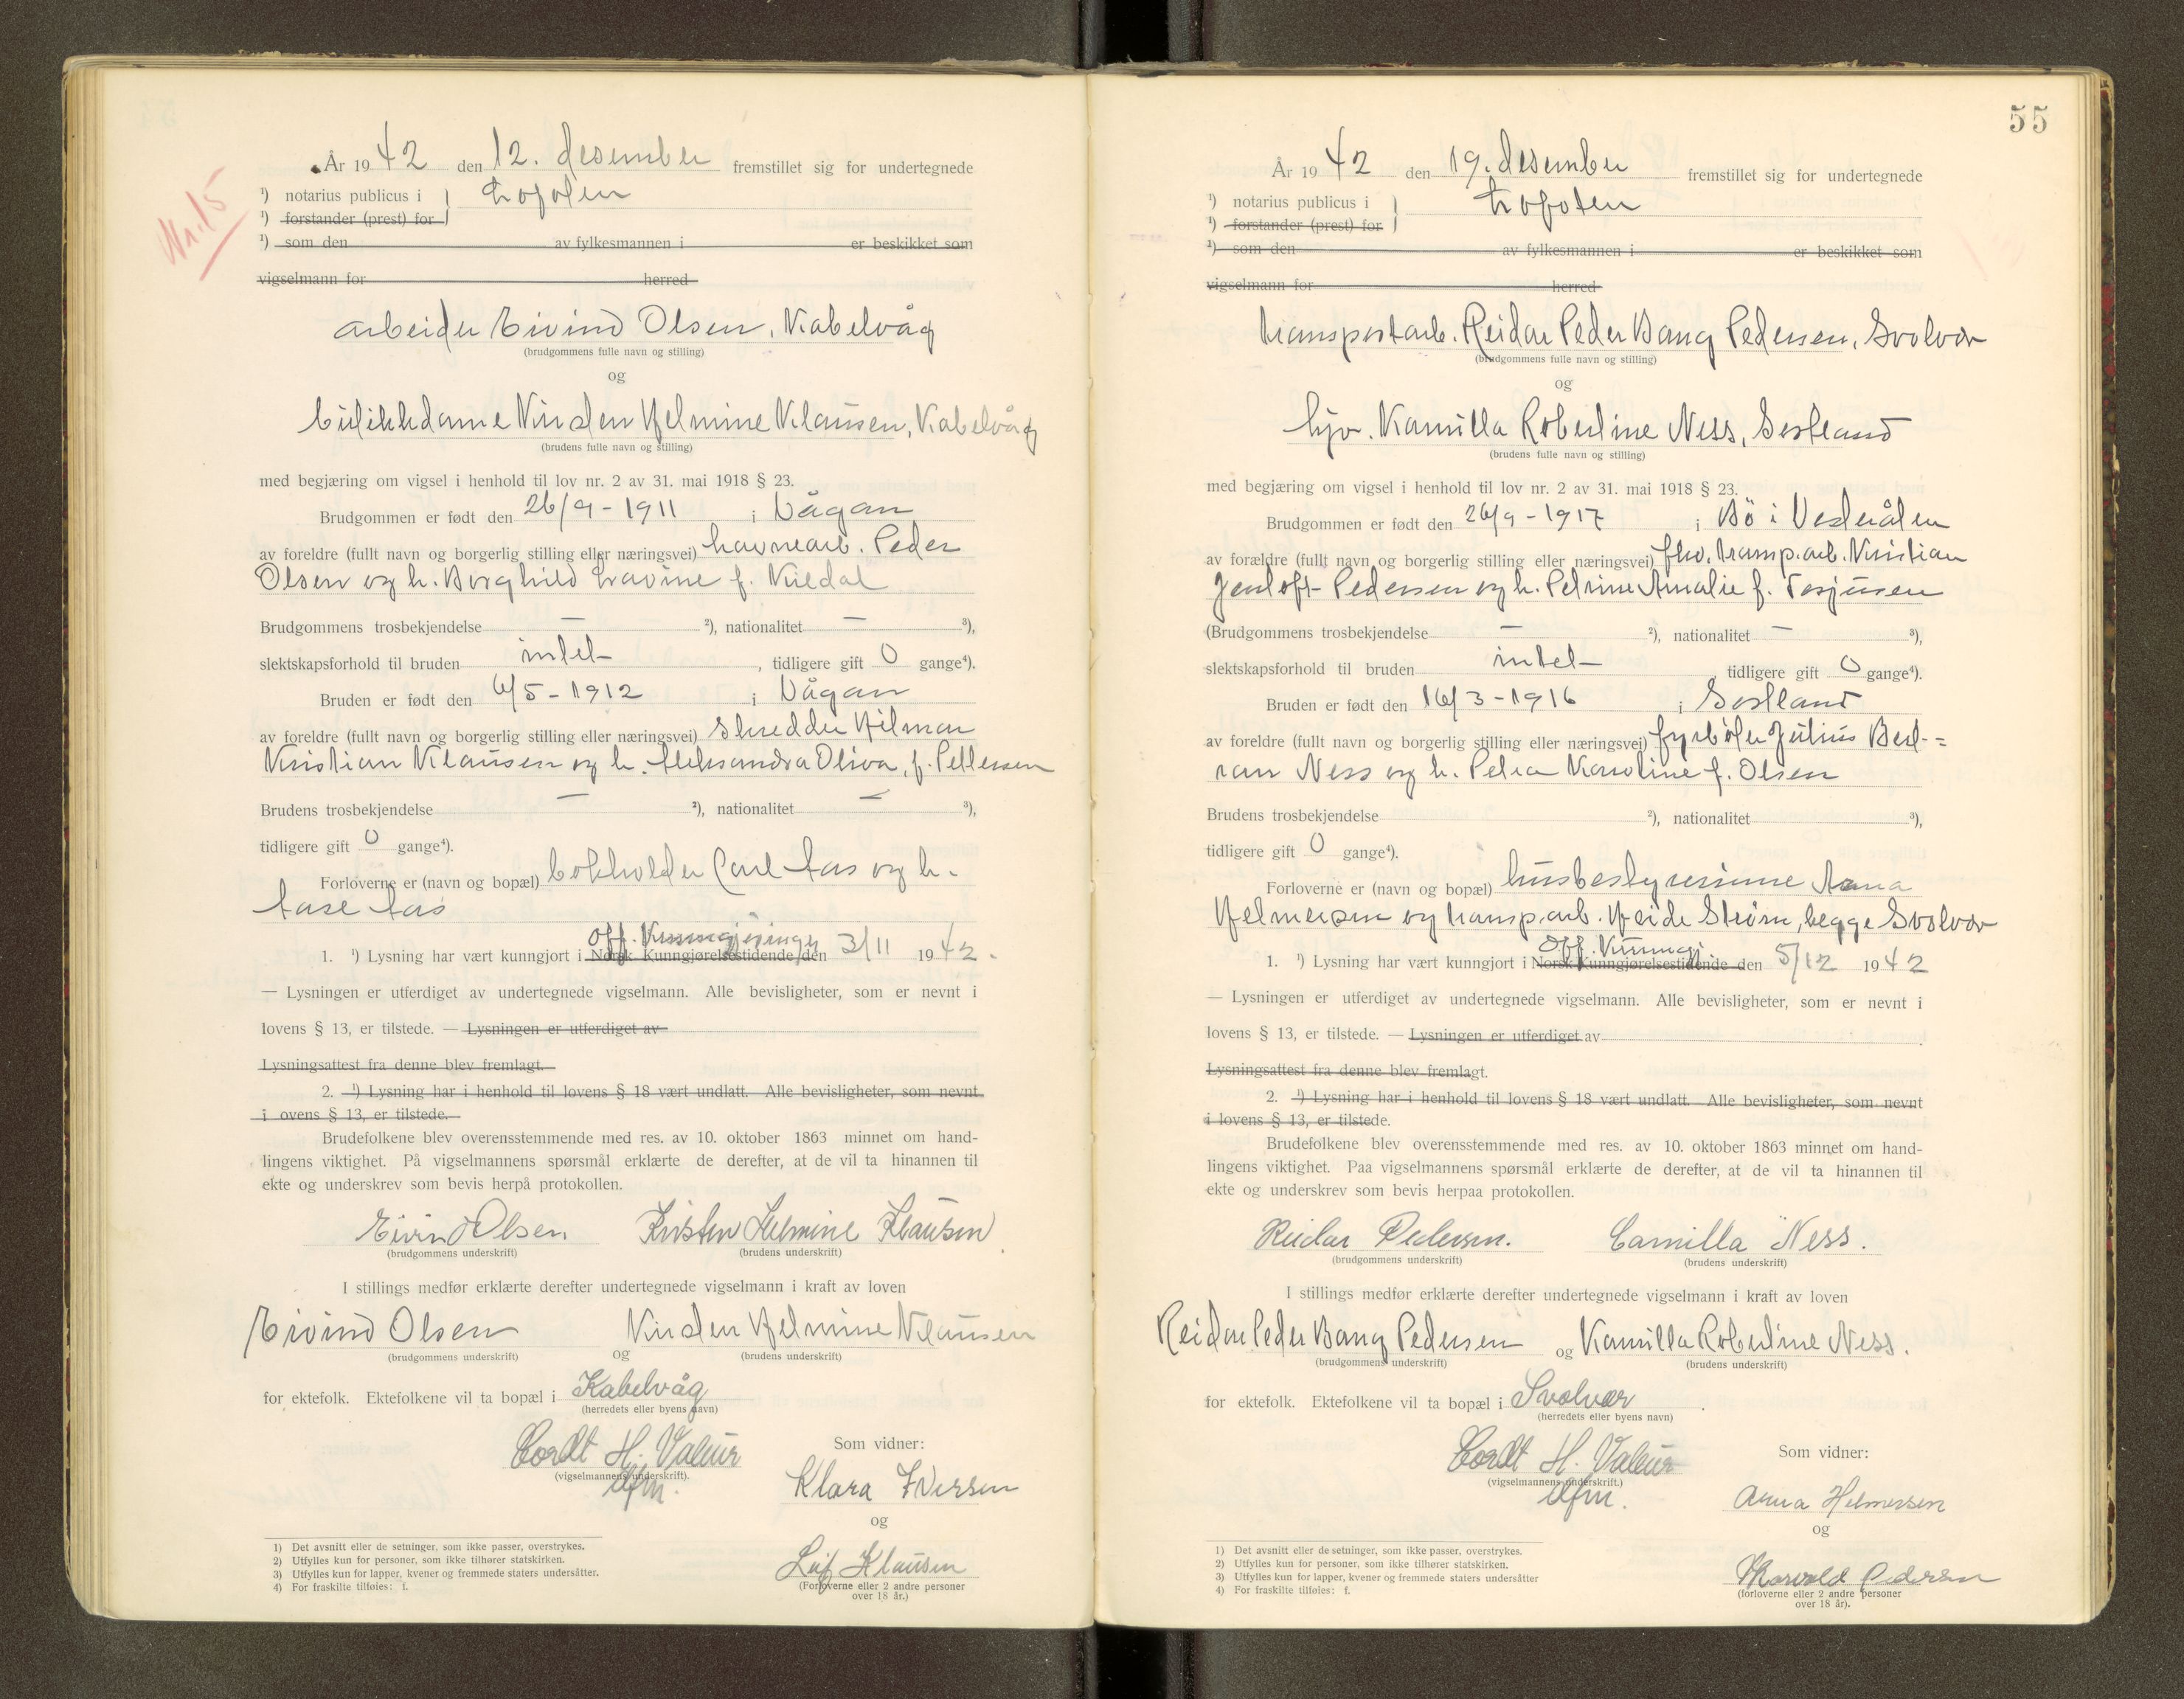 Nr. 15
År 1942 den 12. desember fremstillet sig for undertegnede
¹) notarius publicus i } Lofoten
¹) forstander (prest) for
¹) som den av fylkesmannen i er beskikket som
vigselmann for herred
arbeider Eivind Olsen, Kabelvåg
(brudgommens fulle navn og stilling)
og
butikkdame Kirsten Helmine Klausen, Kabelvåg
(brudens fulle navn og stilling)
med begjæring om vigsel i henhold til lov nr. 2 av 31. mai 1918 § 23.
Brudgommen er født den 26/9 - 1911 i Vågan
av foreldre (fullt navn og borgerlig stilling eller næringsvei) havnearb. Peder
Olsen og h. Borghild Lavine f. Kildal
Brudgommens trosbekjendelse — ²), nationalitet — ³),
slektskapsforhold til bruden intet , tidligere gift 0 gange⁴).
Bruden er født den 6/5 - 1912 i Vågan
av foreldre (fullt navn og borgerlig stilling eller næringsvei) skredder Hilmar
Kristian Klausen og h. Aleksandra Oliva, f. Pettersen
Brudens trosbekjendelse — ²), nationalitet — ³),
tidligere gift 0 gange⁴).
Forloverne er (navn og bopæl) bokholder Carl Aas og h.
Aase Aas
off. Kunngjøringer
1. ¹) Lysning har vært kunngjort i Norsk Kunngjørelsestidende den 3/11 1942.
— Lysningen er utferdiget av undertegnede vigselmann. Alle bevisligheter, som er nevnt i
lovens § 13, er tilstede. — Lysningen er utferdiget av
Lysningsattest fra denne blev fremlagt.
2. ¹) Lysning har i henhold til lovens § 18 vært undlatt. Alle bevisligheter, som nevnt
i ovens § 13, er tilstede.
Brudefolkene blev overensstemmende med res. av 10. oktober 1863 minnet om hand-
lingens viktighet. På vigselmannens spørsmål erklærte de derefter, at de vil ta hinannen til
ekte og underskrev som bevis herpå protokollen.
Eivind Olsen. Kirsten Helmine Klausen
(brudgommens underskrift) (brudens underskrift)
I stillings medfør erklærte derefter undertegnede vigselmann i kraft av loven
Eivind Olsen og Kirsten Helmine Klausen
(brudgommens underskrift) (brudens underskrift)
for ektefolk. Ektefolkene vil ta bopæl i Kabelvåg
(herredets eller byens navn)
Cordt H. Valeur
(vigselmannens underskrift).
Som vidner:
Klara Iversen
og
Leif Klausen
(Forloverne eller 2 andre personer
over 18 år.)
1) Det avsnitt eller de setninger, som ikke passer, overstrykes.
2) Utfylles kun for personer, som ikke tilhører statskirken.
3) Utfylles kun for lapper, kvener og fremmede staters undersåtter.
4) For fraskilte tilføies: f.
55
År 1942 den 19. desember fremstillet sig for undertegnede
¹) notarius publicus i } Lofoten
¹) forstander (prest) for
¹) som den av fylkesmannen i er beskikket som
vigselmann for herred
transportarb. Reidar Peder Bang Pedersen, Svolvær
(brudgommens fulle navn og stilling)
og
hjv. Kamilla Robertine Ness, Sortland
(brudens fulle navn og stilling)
med begjæring om vigsel i henhold til lov nr. 2 av 31. mai 1918 § 23.
Brudgommen er født den 26/9 - 1917 i Bö i Vesterålen
av forældre (fullt navn og borgerlig stilling eller næringsvei) fhv. transp.arb. Kristian
Jentoft Pedersen og h. Petrine Amalie f. Torjusen
(Brudgommens trosbekjendelse — ²), nationalitet — ³),
slektskapsforhold til bruden intet tidligere gift 0 gange⁴).
Bruden er født den 16/3 - 1916 i Sortland
av foreldre (fullt navn og borgerlig stilling eller næringsvei) fyrböter Julius Bert-=
ran Ness og h. Petra Karoline f. Olsen
Brudens trosbekjendelse ²), nationalitet ³),
tidligere gift 0 gange⁴).
Forloverne er (navn og bopæl) husbestyrerinne Anna
Helmersen og transp.arb. Heide Strøm, begge Svolvær
Off. Kunngj.
1. ¹) Lysning har vært kunngjort i Norsk Kunngjørelsestidende den 5/12 1942
— Lysningen er utferdiget av undertegnede vigselmann. Alle bevisligheter, som er nevnt i
lovens § 13, er tilstede. — Lysningen er utferdiget av
Lysningsattest fra denne blev fremlagt.
2. ¹) Lysning har i henhold til lovens § 18 vært undlatt. Alle bevisligheter, som nevnt
i lovens § 13, er tilstede.
Brudefolkene blev overensstemmende med res. av 10. oktober 1863 minnet om hand-
lingens viktighet. Paa vigselmannens spørsmål erklærte de derefter, at de vil ta hinannen til
ekte og underskrev som bevis herpaa protokollen.
Reidar Pedersen. Camilla Ness.
(brudgommens underskrift) (brudens underskrift)
I stillings medfør erklærte derefter undertegnede vigselmann i kraft av loven
Reidar Peder Bang Pedersen og Kamilla Robertine Ness.
(brudgommens underskrift) (brudens underskrift)
for ektefolk. Ektefolkene vil ta bopæl i Svolvær
(herredets eller byens navn)
Cordt H. Valeur
(vigselmannens underskrift.)
Som vidner:
Anna Helmersen
og
Thorvald Pedersen
(forloverne eller 2 andre personer
over 18 år).
1) Det avsnitt eller de setninger, som ikke passer, overstrykes.
2) Utfylles kun for personer, som ikke tilhører statskirken.
3) Utfylles kun for lapper, kvener og fremmede staters undersåtter
4) For fraskilte tilføies: f.